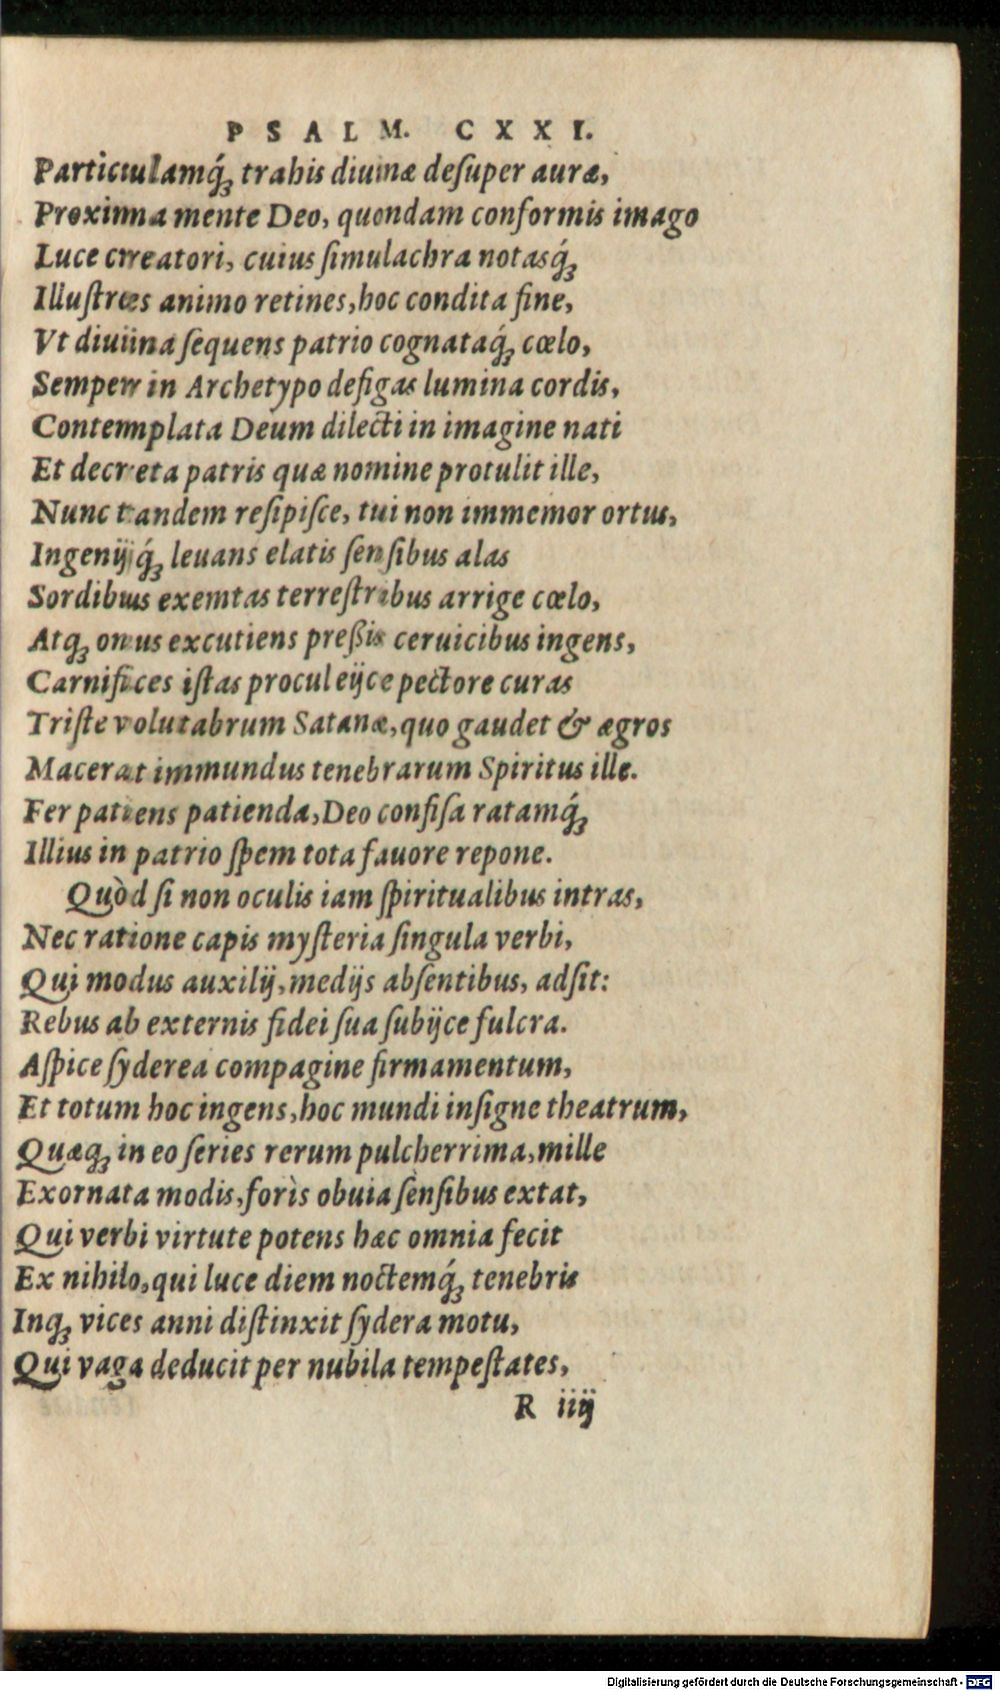 PSALM. CXXI.
Particulamq́ꝫ trahis diuinæ deſuper auræ,
Proxima mente Deo, quondam conformis imago
Luce creatori, cuius ſimulachra notasq́ꝫ
Illuſtres animo retines, hoc condita fine,
Vt diuina ſequens patrio cognataq́ꝫ cœlo,
Semper in Archetypo defigas lumina cordis,
Contemplata Deum dilecti in imagine nati
Et decreta patris quæ nomine protulit ille,
Nunc tandem reſipiſce, tui non immemor ortus,
Ingenijq́ꝫ leuans elatis ſenſibus alas
Sordibus exemtas terreſtribus arrige cœlo,
Atqꝫ onus excutiens preßis ceruicibus ingens,
Carnifices iſtas procul eijce pectore curas
Triſte volutabrum Satanæ, quo gaudet & ægros
Macerat immundus tenebrarum Spiritus ille.
Fer patiens patienda, Deo confiſa ratamq́ꝫ
Illius in patrio ſpem tota fauore repone.
Quòd ſi non oculis iam ſpiritualibus intras,
Nec ratione capis myſteria ſingula verbi,
Qui modus auxilij, medijs abſentibus, adſit:
Rebus ab externis fidei ſua ſubijce fulcra.
Aſpice ſyderea compagine firmamentum,
Et totum hoc ingens, hoc mundi inſigne theatrum,
Quæqꝫ in eo ſeries rerum pulcherrima, mille
Exornata modis, forìs obuia ſenſibus extat,
Qui verbi virtute potens hæc omnia fecit
Ex nihilo, qui luce diem noctemq́ꝫ tenebris
Inqꝫ vices anni diſtinxit ſydera motu,
Qui vaga deducit per nubila tempeſtates,
R iiij
Digitalisierung gefördert durch die Deutsche Forschungsgemeinschaft - DFG